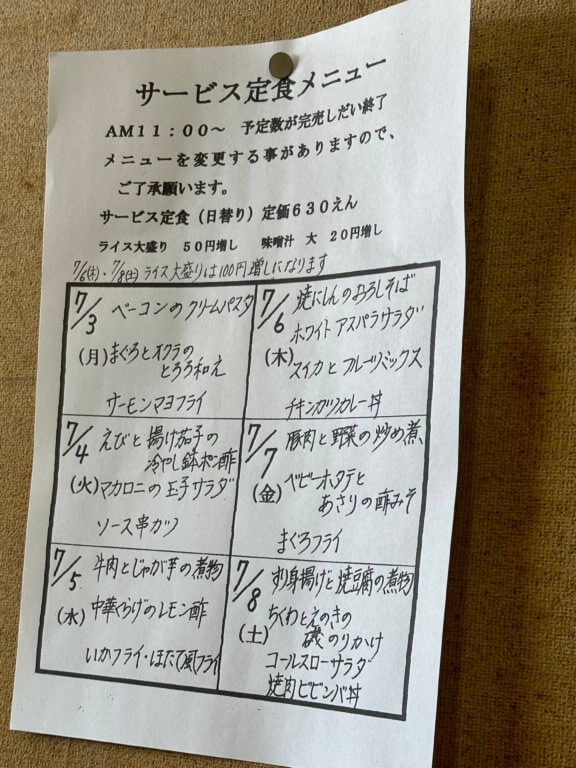 サービス定食メニュー
AM11：00～　予定数が完売しだい終了
メニューを変更する事がありますので、
ご了承願います。
サービス定食（日替り）定価６３０えん
ライス大盛り　５０円増し　味噌汁　大　２０円増し
7/6(木)・7/8(土)ライス大盛りは100円増しになります
7/3
(月)
ベーコンのクリームパスタ
まぐろとオクラの
とろろ和え
サーモンマヨフライ
7/4
(火)
えびと揚げ茄子の
冷やし鉢ポン酢
マカロニの玉子サラダ
ソース串カツ
7/5
(水)
牛肉とじゃが芋の煮物
中華くらげのレモン酢
いかフライ・ほたて風フライ
7/6
(木)
焼にしんのおろしそば
ホワイトアスパラサラダ
スイカとフルーツミックス
チキンカツカレー丼
7/7
(金)
豚肉と野菜の炒め煮
ベビーホタテと
あさりの酢みそ
まぐろフライ
7/8
(土)
すり身揚げと焼豆腐の煮物
ちくわとえのきの
磯のりかけ
コールスローサラダ
焼肉ビビンバ丼